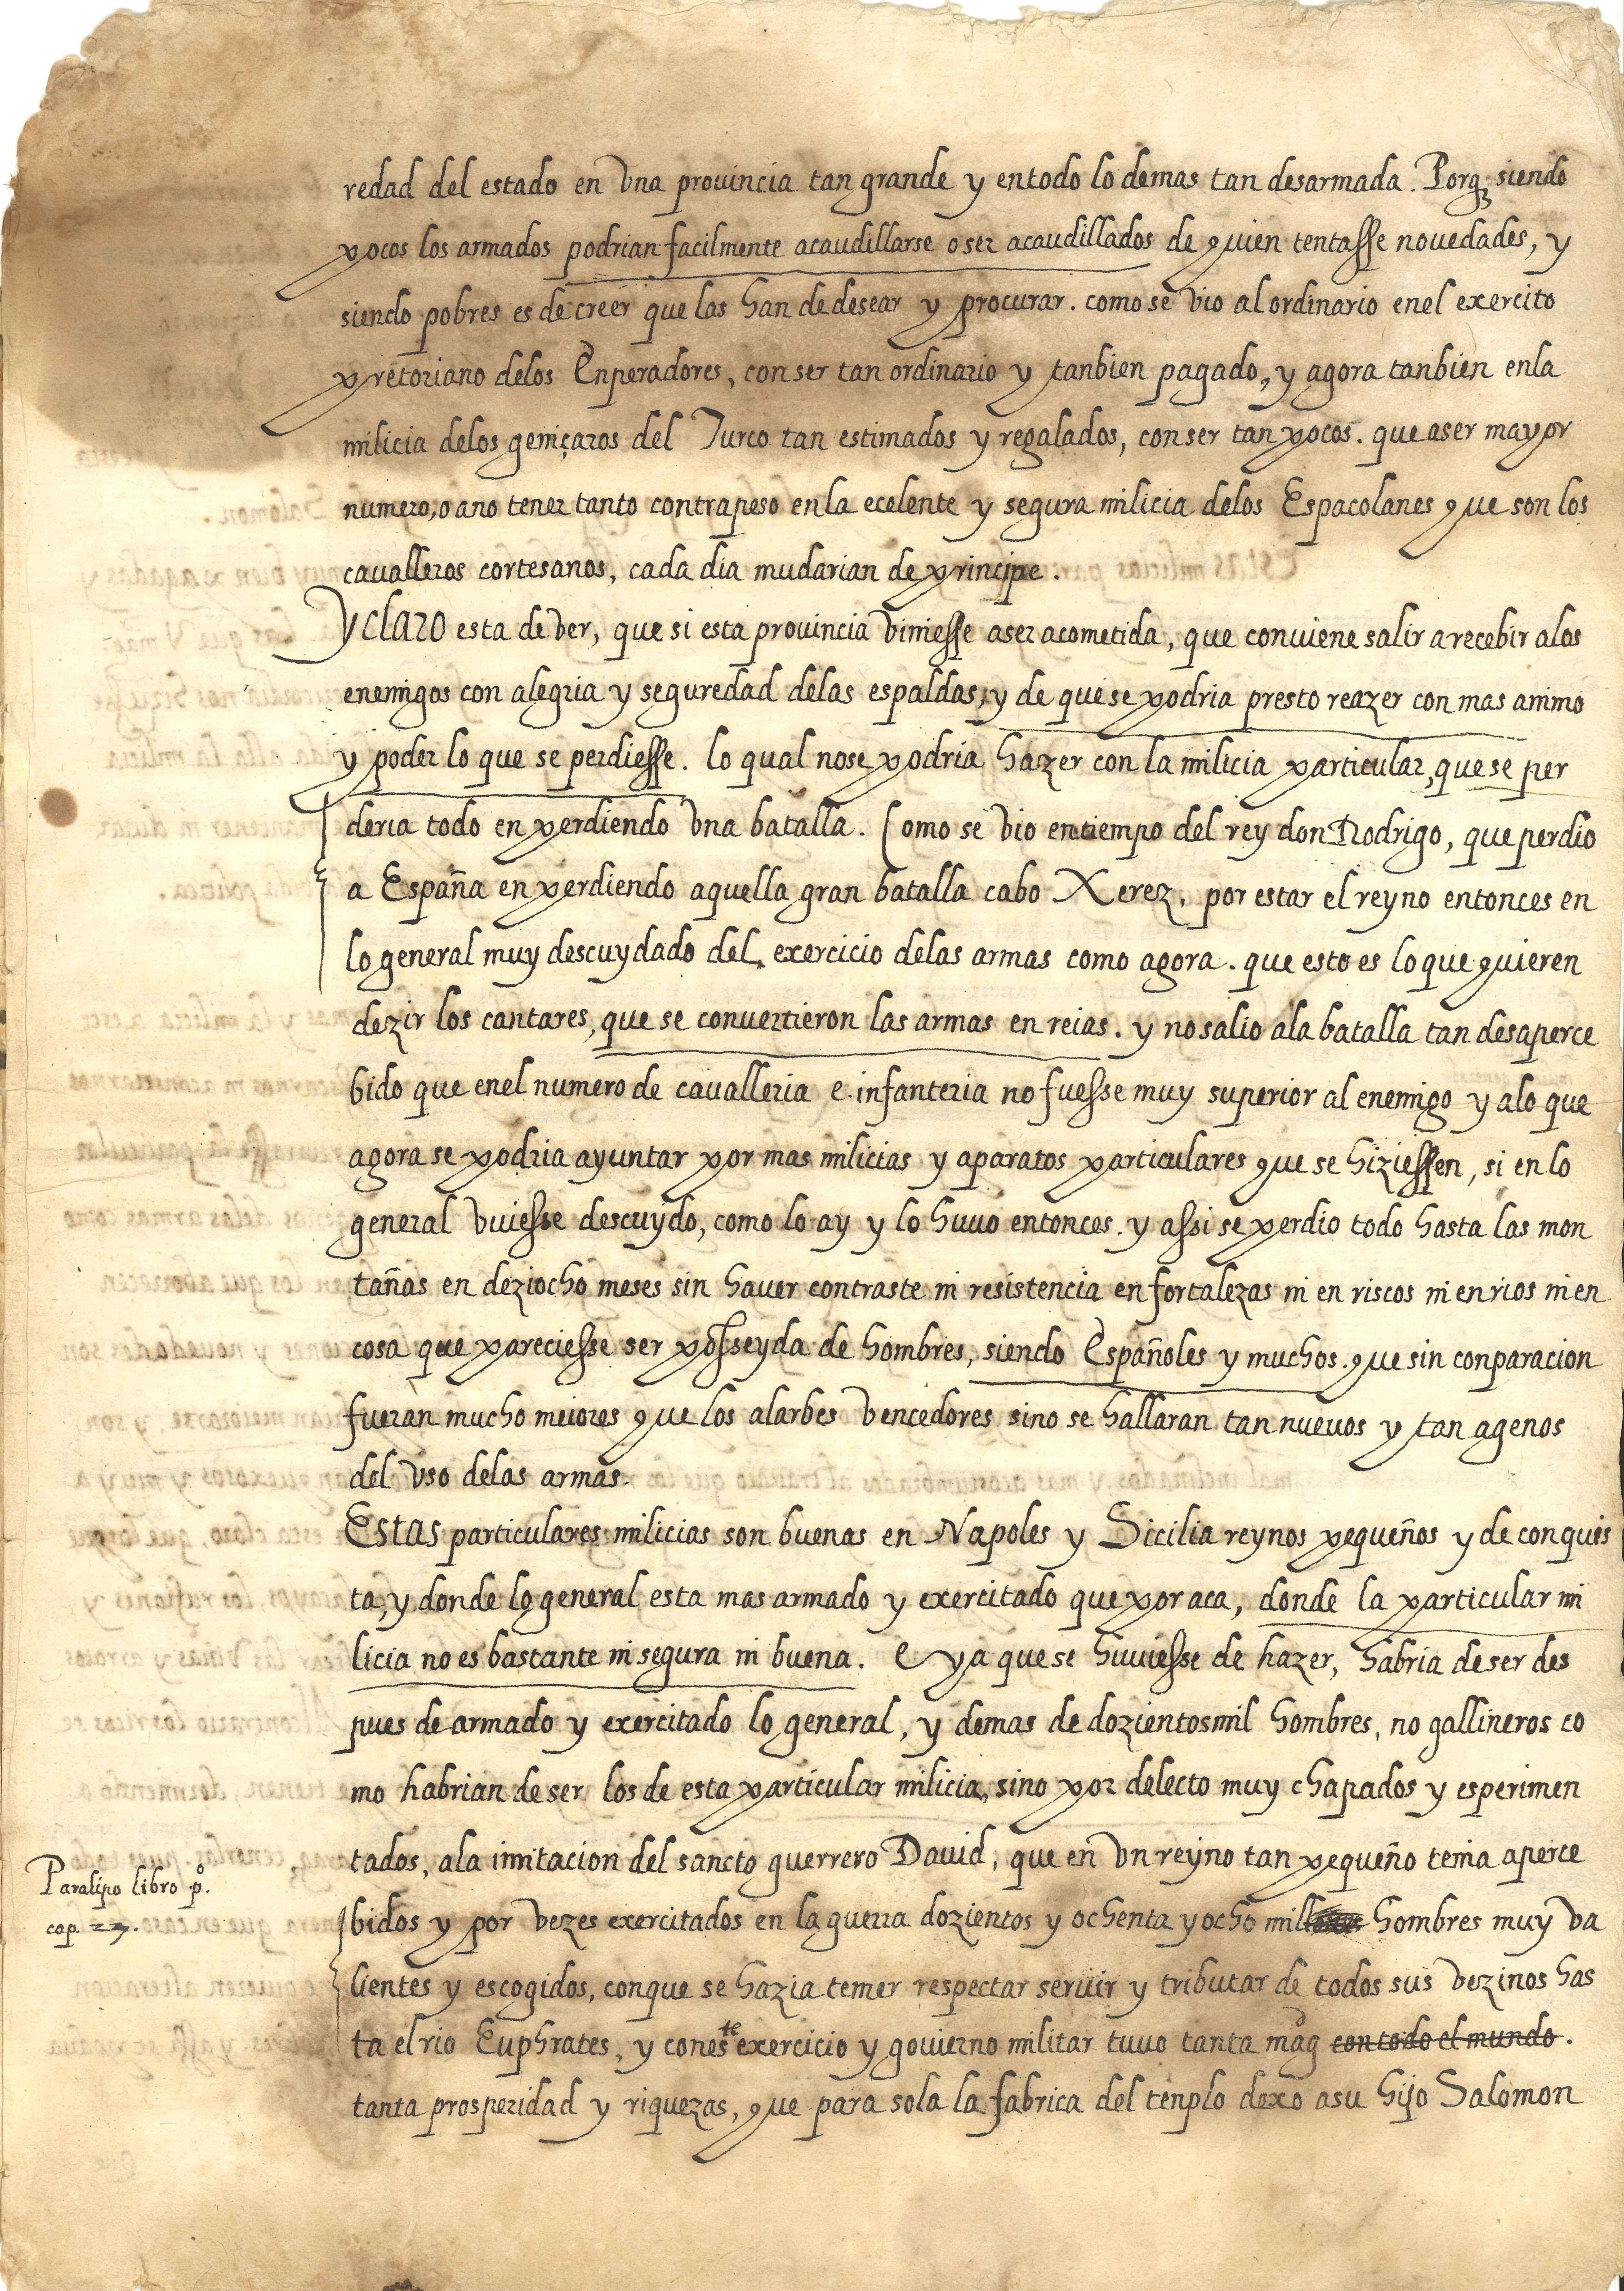 redad del estado en vna prouincia tan grande y entodo lo demas tan desarmada. Porq siendo
pocos los armados podrian facilmente acaudillarse o ser acaudillados de quien tentasse nouedades, y
siendo pobres es de creer que las han de desear y procurar. como se vio al ordinario enel exercito
pretoriano delos Enperadores, con ser tan ordinario y tanbien pagado, y agora tanbien enla
milicia delos geniçaros del Turco tan estimados y regalados, con ser tan pocos. que a ser mayor
numero, o ano tener tanto contrapeso enla ecelente y segura milicia delos Espacolanes que son los
caualleros cortesanos, cada dia mudarian de principe.
Y claro esta de ver, que si esta prouincia viniesse aser acometida, que conuiene salir a recebir alos
enemigos con alegria y seguredad delas espaldas, y de que se podria presto reazer con mas animo
y poder lo que se perdiesse. lo qual nose podria hazer con la milicia particular, que se per
deria todo en perdiendo vna batalla. Como se vio en tiempo del rey don Rodrigo, que perdio
a España en perdiendo aquella gran batalla cabo Xerez, por estar el reyno entonces en
lo general muy descuydado del exercicio delas armas como agora. que esto es lo que quieren
dezir los cantares, que se conuertieron las armas en reias. y no salio ala batalla tan desaperce
bido que enel numero de caualleria e infanteria no fuesse muy superior al enemigo y alo que
agora se podria ayuntar por mas milicias y aparatos particulares que se hiziessen, si en lo
general vuiesse descuydo, como lo ay y lo huuo entonces. y assi se perdio todo hasta las mon
tañas en deziocho meses sin hauer contraste ni resistencia en fortalezas ni en riscos ni en rios ni en
cosa que pareciesse ser posseyda de hombres, siendo Españoles y muchos. que sin conparacion
fueran mucho meiores que los alarbes vencedores sino se hallaran tan nueuos y tan agenos
del vso delas armas.
Estas particulares milicias son buenas en Napoles y Sicilia reynos pequeños y de conquis
ta, y donde lo general esta mas armado y exercitado que por aca, donde la particular mi
licia no es bastante ni segura ni buena. e ya que se huuiesse de hazer, habria de ser des
pues de armado y exercitado lo general, y demas de dozientos mil hombres, no gallineros co
mo habrian de ser los de esta particular milicia, sino por delecto muy chapados y esperimen
tados, ala imitacion del sancto guerrero Dauid, que en vn reyno tan pequeño tenia aperce
Paralipo libro pº.
cap. 27.
bidos y por vezes exercitados en la guerra dozientos y ochenta y ocho mil hombres muy va
lientes y escogidos, conque se hazia temer respectar seruir y tributar de todos sus vezinos has
ta el rio Euphrates, y con este exercicio y gouierno militar tuuo tanta magd con todo el mundo.
tanta prosperidad y riquezas, que para sola la fabrica del tenplo dexo asu hijo Salomon